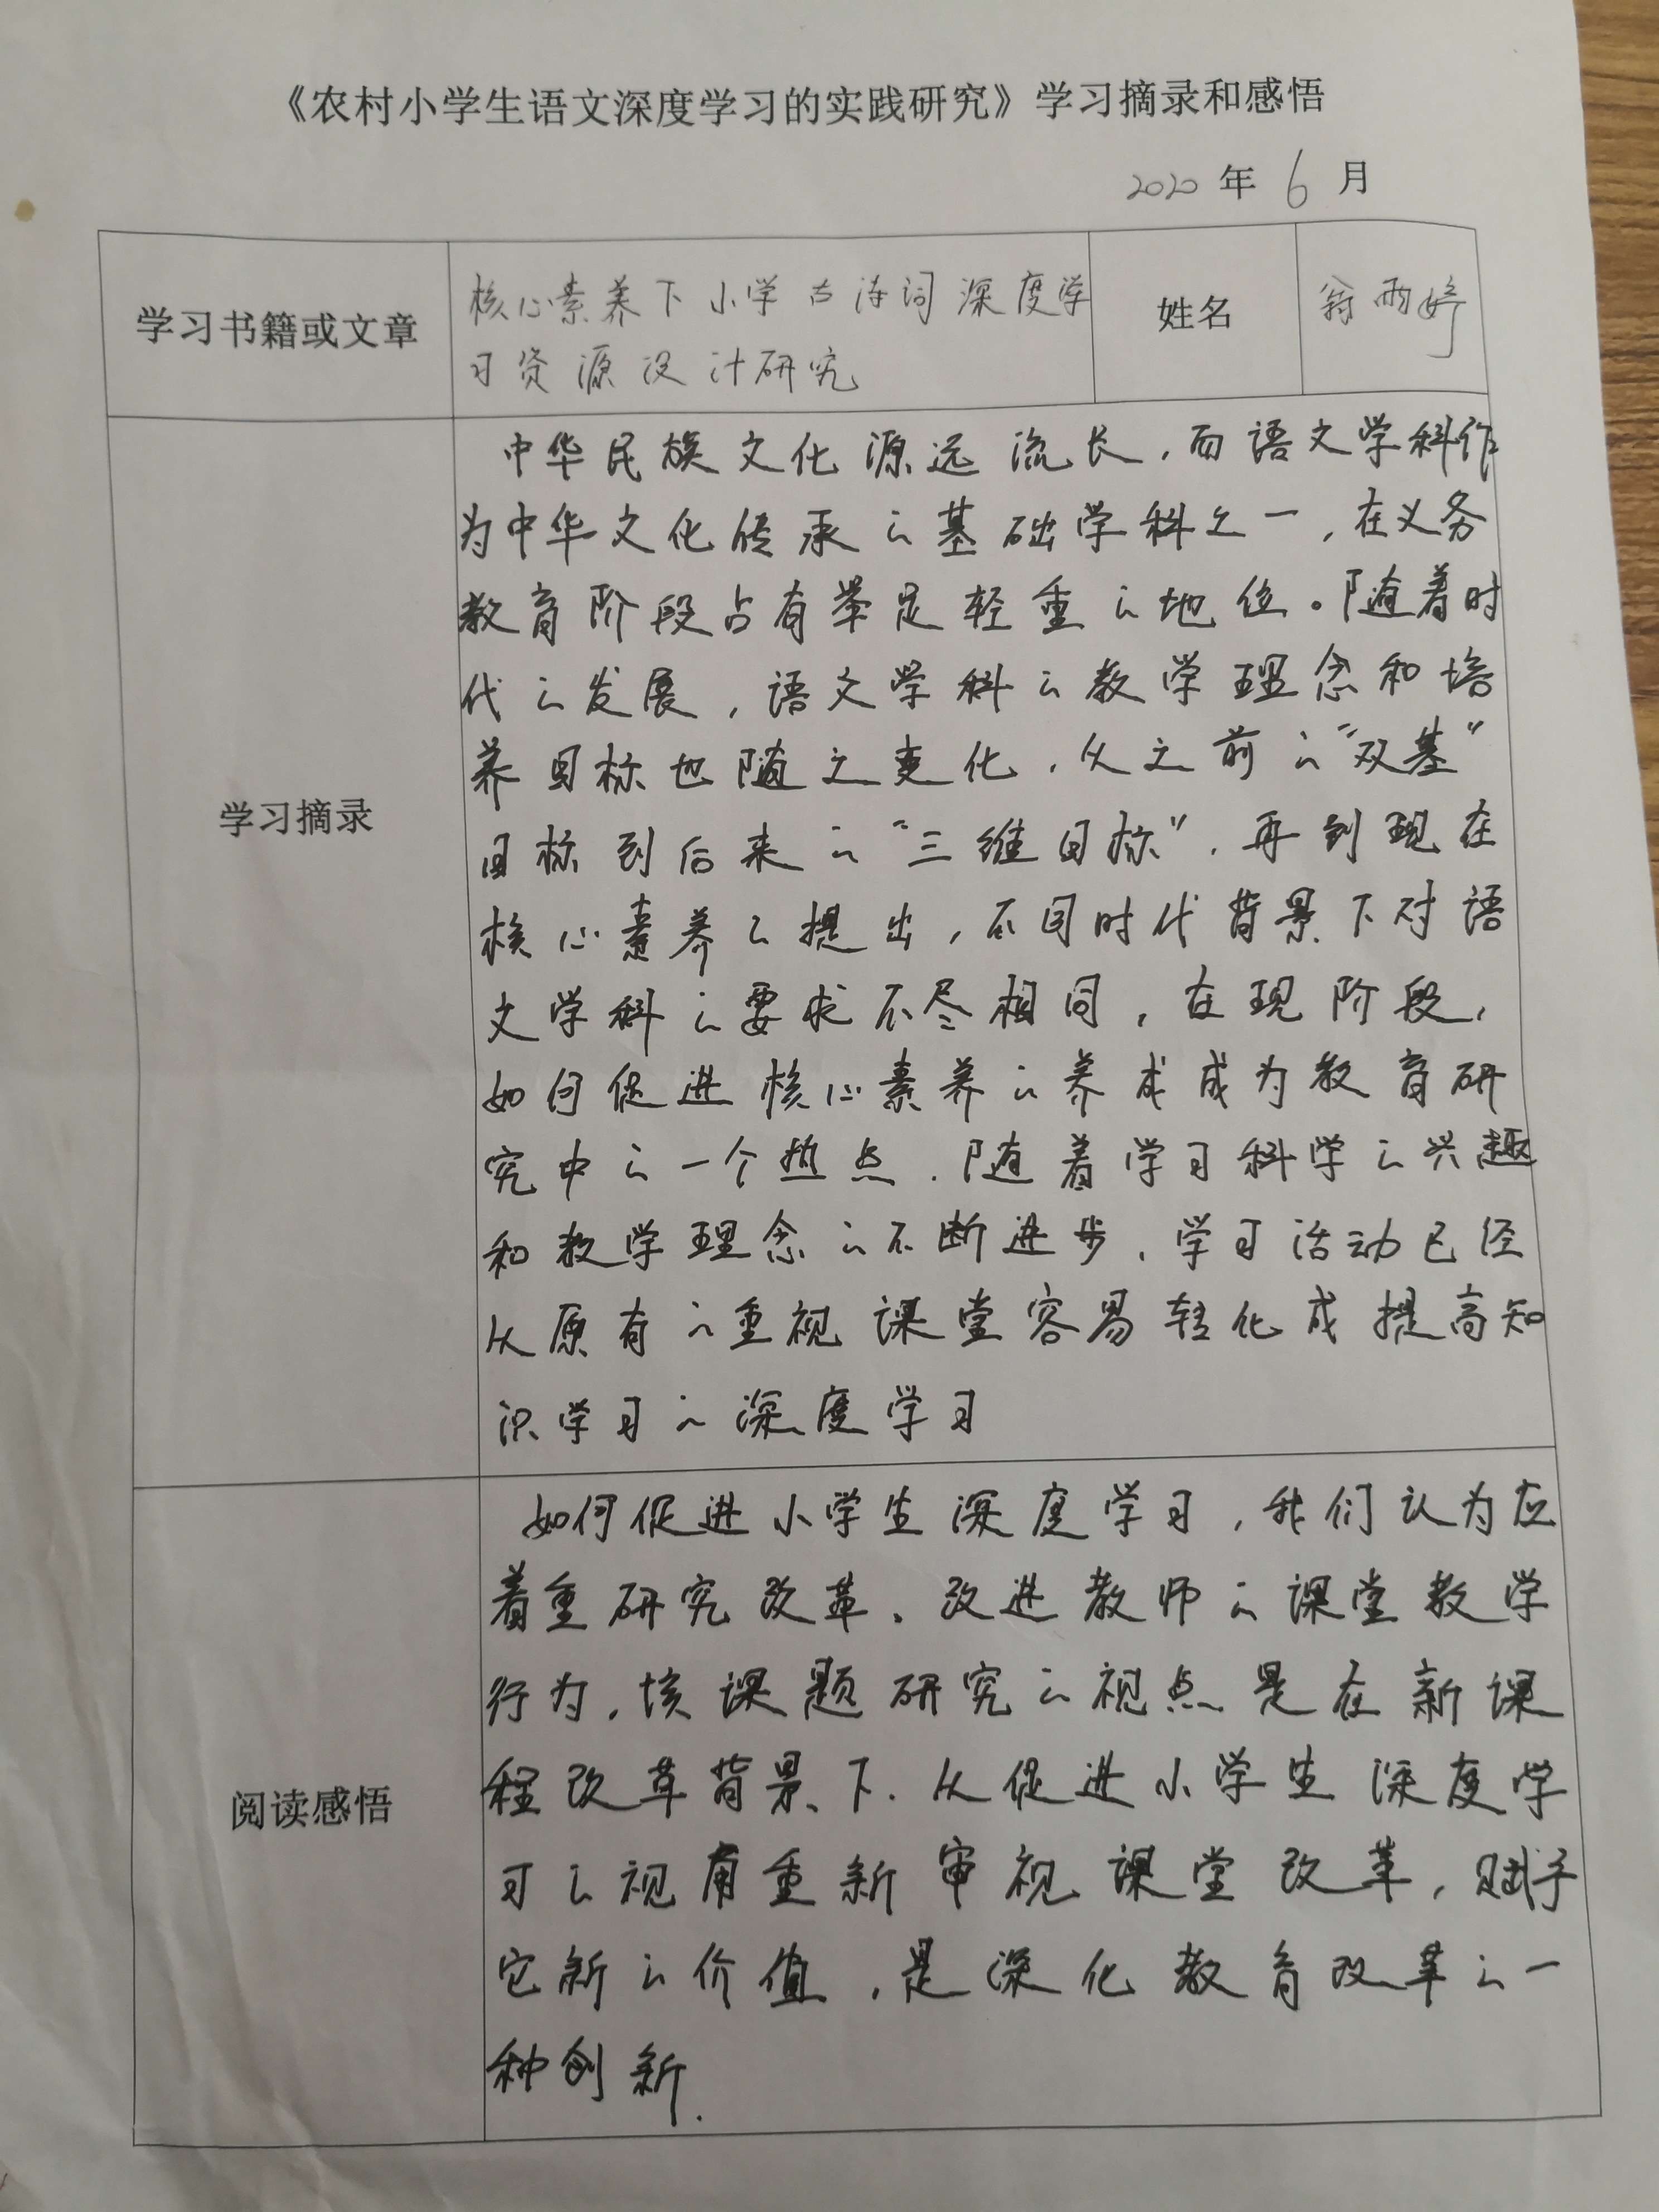 《农村小学生语文深度学习的实践研究》学习摘录和感悟
2020 年 6 月
学习书籍或文章
核心素养下小学古诗词深度学
习资源设计研究
姓名
翁雨婷
学习摘录
中华民族文化源远流长,而语文学科作
为中华文化传承的基础学科之一,在义务
教育阶段占有举足轻重的地位。随着时
代的发展,语文学科的教学理念和培
养目标也随之变化,从之前的“双基”
目标到后来的“三维目标”,再到现在
核心素养的提出,不同时代背景下对语
文学科的要求不尽相同,在现阶段,
如何促进核心素养的养成成为教育研
究中的一个热点.随着学习科学的兴趣
和教学理念的不断进步,学习活动已经
从原有的重视课堂容易转化成提高知
识学习的深度学习
阅读感悟
如何促进小学生深度学习,我们认为应
着重研究改革、改进教师的课堂教学
行为,该课题研究的视点是在新课
程改革背景下.从促进小学生深度学
习的视角重新审视课堂改革,赋予
它新的价值,是深化教育改革的一
种创新.